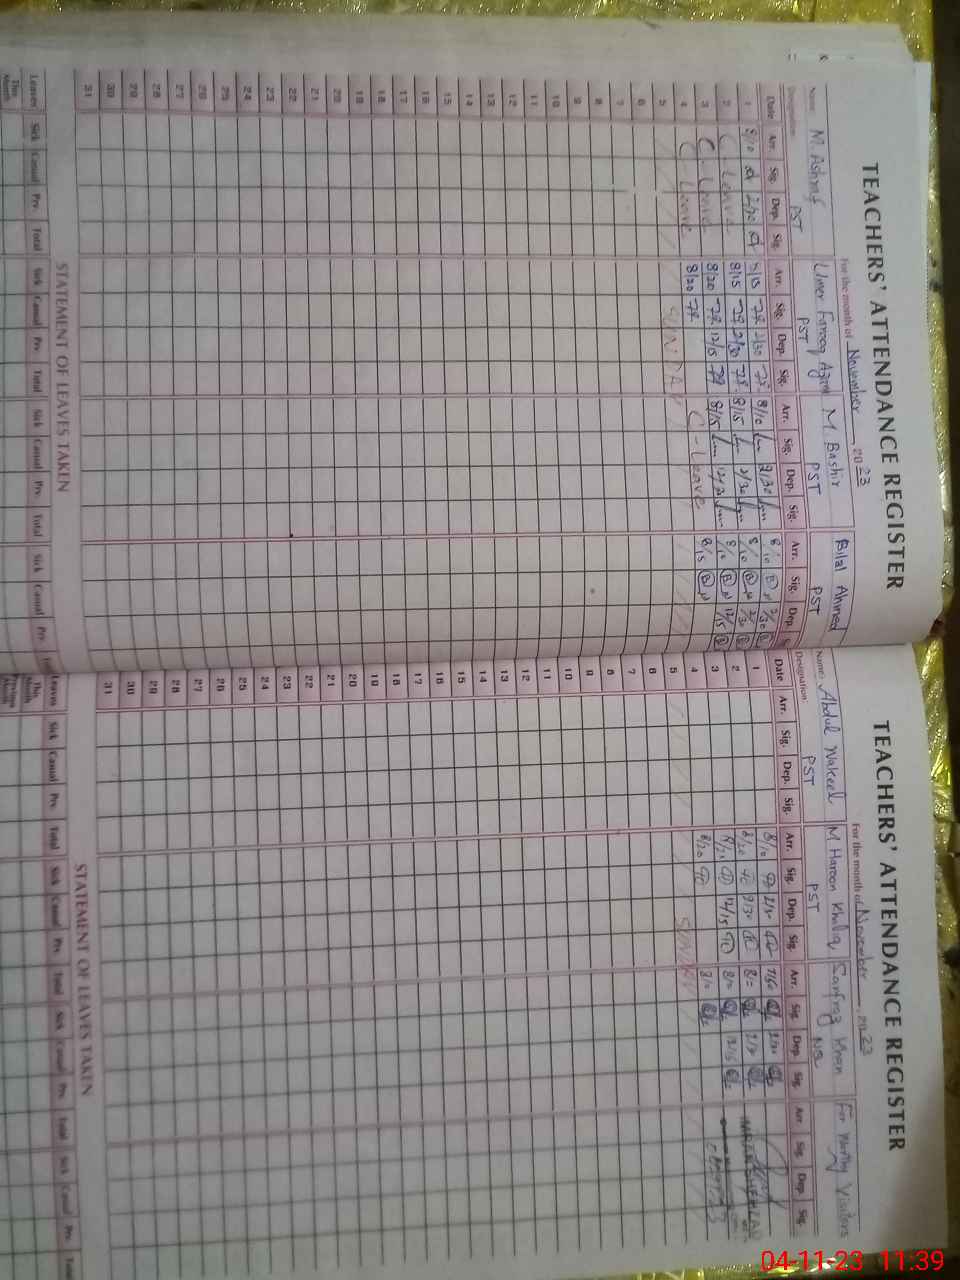 TEACHERS' ATTENDANCE REGISTER
For the month of November, 2023
Name: M. Ashraf Umer Farooq Azam M. Bashir Bilal Ahmed
Designation PST PST PST PST
Date Arr. Sig. Dep. Sig. Arr. Sig. Dep. Sig. Arr. Sig. Dep. Sig. Arr. Sig. Dep. S
1 8/10 2/30 8/15 2/30 8/10 2/30 8/10 2/30
2 C. Leave 8/15 2/30 8/15 2/30 8/10 2/30
3 C. Leave 8/20 12/15 8/15 8/10 12/15
4 C Leave 8/20 C-Leave 8/15
5 SUNDAY
6
7
8
9
10
11
12
13
14
15
16
17
18
19
20
21
22
23
24
25
26
27
28
29
30
31
STATEMENT OF LEAVES TAKEN
Leaves Sick Casual Prv. Total Sick Casual Prv. Total Sick Casual Prv. Total Sick Casual Prv.
This Month
TEACHERS' ATTENDANCE REGISTER
For the month of November, 2023
Name: Abdul Wakeel M Haroon Khaliq Sarfraz Khan For Worthy Visitors
Designation PST PST NQ
Date Arr. Sig. Dep. Sig. Arr. Sig. Dep. Sig. Arr. Sig. Dep. Sig. Arr. Sig. Dep. Sig.
1 8/10 2/30
2 8/20 2/30
3 12/15 12/15
4 8/20
5 SUNDAY
6
7
8
9
10
11
12
13
14
15
16
17
18
19
20
21
22
23
24
25
26
27
28
29
30
31
STATEMENT OF LEAVES TAKEN
Leaves Sick Casual Prv. Total Sick Casual Prv. Total Sick Casual Prv. Total Sick Casual Prv. Total
This Month
Previous Month
04-11-23 11:39